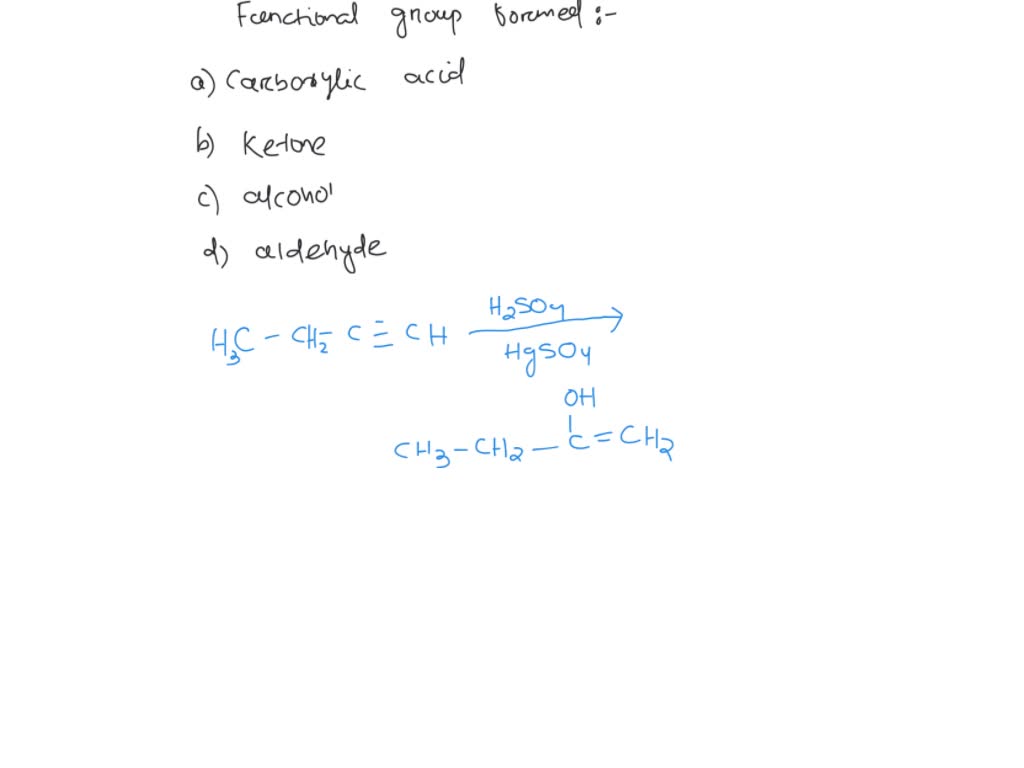 Functional group formed :-
a) Carboxylic acid
b) Ketone
c) alcohol
d) aldehyde
H₃C - CH₂ C ≡ CH H₂SO₄ HgSO₄
OH
CH₃ - CH₂ - C = CH₂